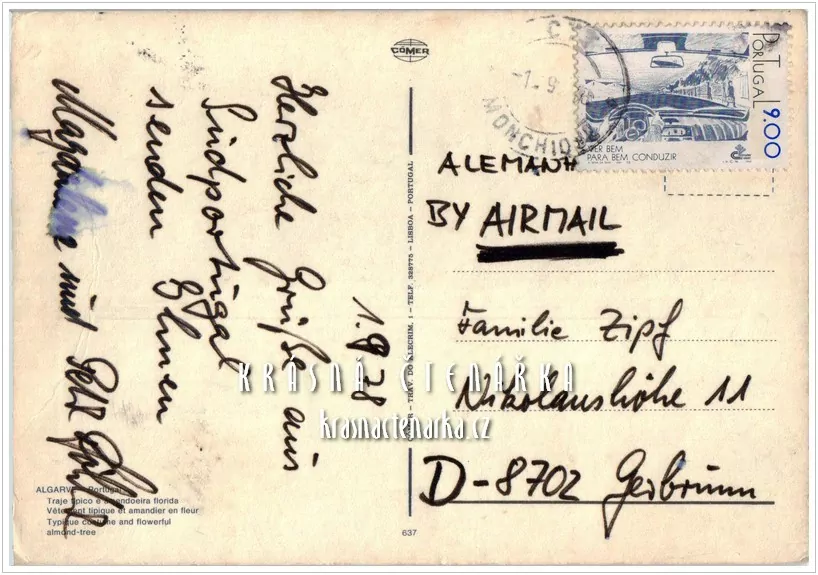 COMER
PORTUGAL 9.00
VER BEM
PARA BEM CONDUZIR
ALEMANH
BY AIRMAIL
1.9.78
Herzliche Grüße aus
Südportugal
senden Ihnen
und
Familie Zipf
Nikolaushöhe 11
D-8702 Gerbrunn
TRAV. DO ALECRIM, 1 — TELF. 328775 — LISBOA — PORTUGAL
KRASNÁ ČTENÁŘKA
krasnactenarka.cz
ALGARVE - Portugal
Traje típico e amendoeira florida
Vêtement tipique et amandier en fleur
Typique costume and flowerful
almond-tree
637